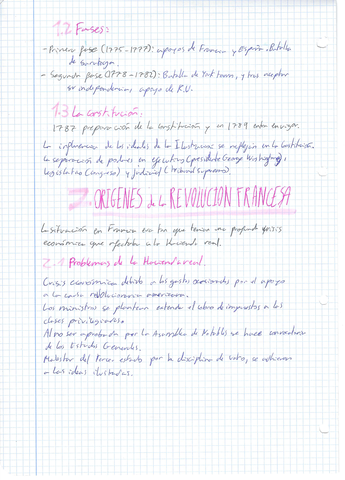 1.2 Fases:
- Primera fase (1775-1777): apoyos de Francia y España. Batalla
de Saratoga.
- Segunda fase (1778-1782): Batalla de Yorktown, y tras aceptar
su independencia, apoyo de R.U.
1.3 La constitución:
1787 preparación de la constitución y en 1789 entra en vigor.
La influencia de los ideales de la Ilustración se reflejan en la Constitución.
La separación de poderes en ejecutivo (presidente George Washington),
legislativo (congreso) y judicial (tribunal supremo).
2. ORIGENES de la REVOLUCION FRANCESA
La situación en Francia era tan que tenía una profunda crisis
económica que afectaba a la Hacienda real.
2.1 Problemas de la Hacienda real.
Crisis económica debido a los gastos ocasionados por el apoyo
a la causa revolucionaria americana.
Los ministros se plantean extender el cobro de impuestos a las
clases privilegiadas.
Al no ser aprobada por la Asamblea de Notables se hace convocatoria
de los Estados Generales.
Malestar del Tercer estado por la disciplina de voto, se adhieren
a las ideas ilustradas.